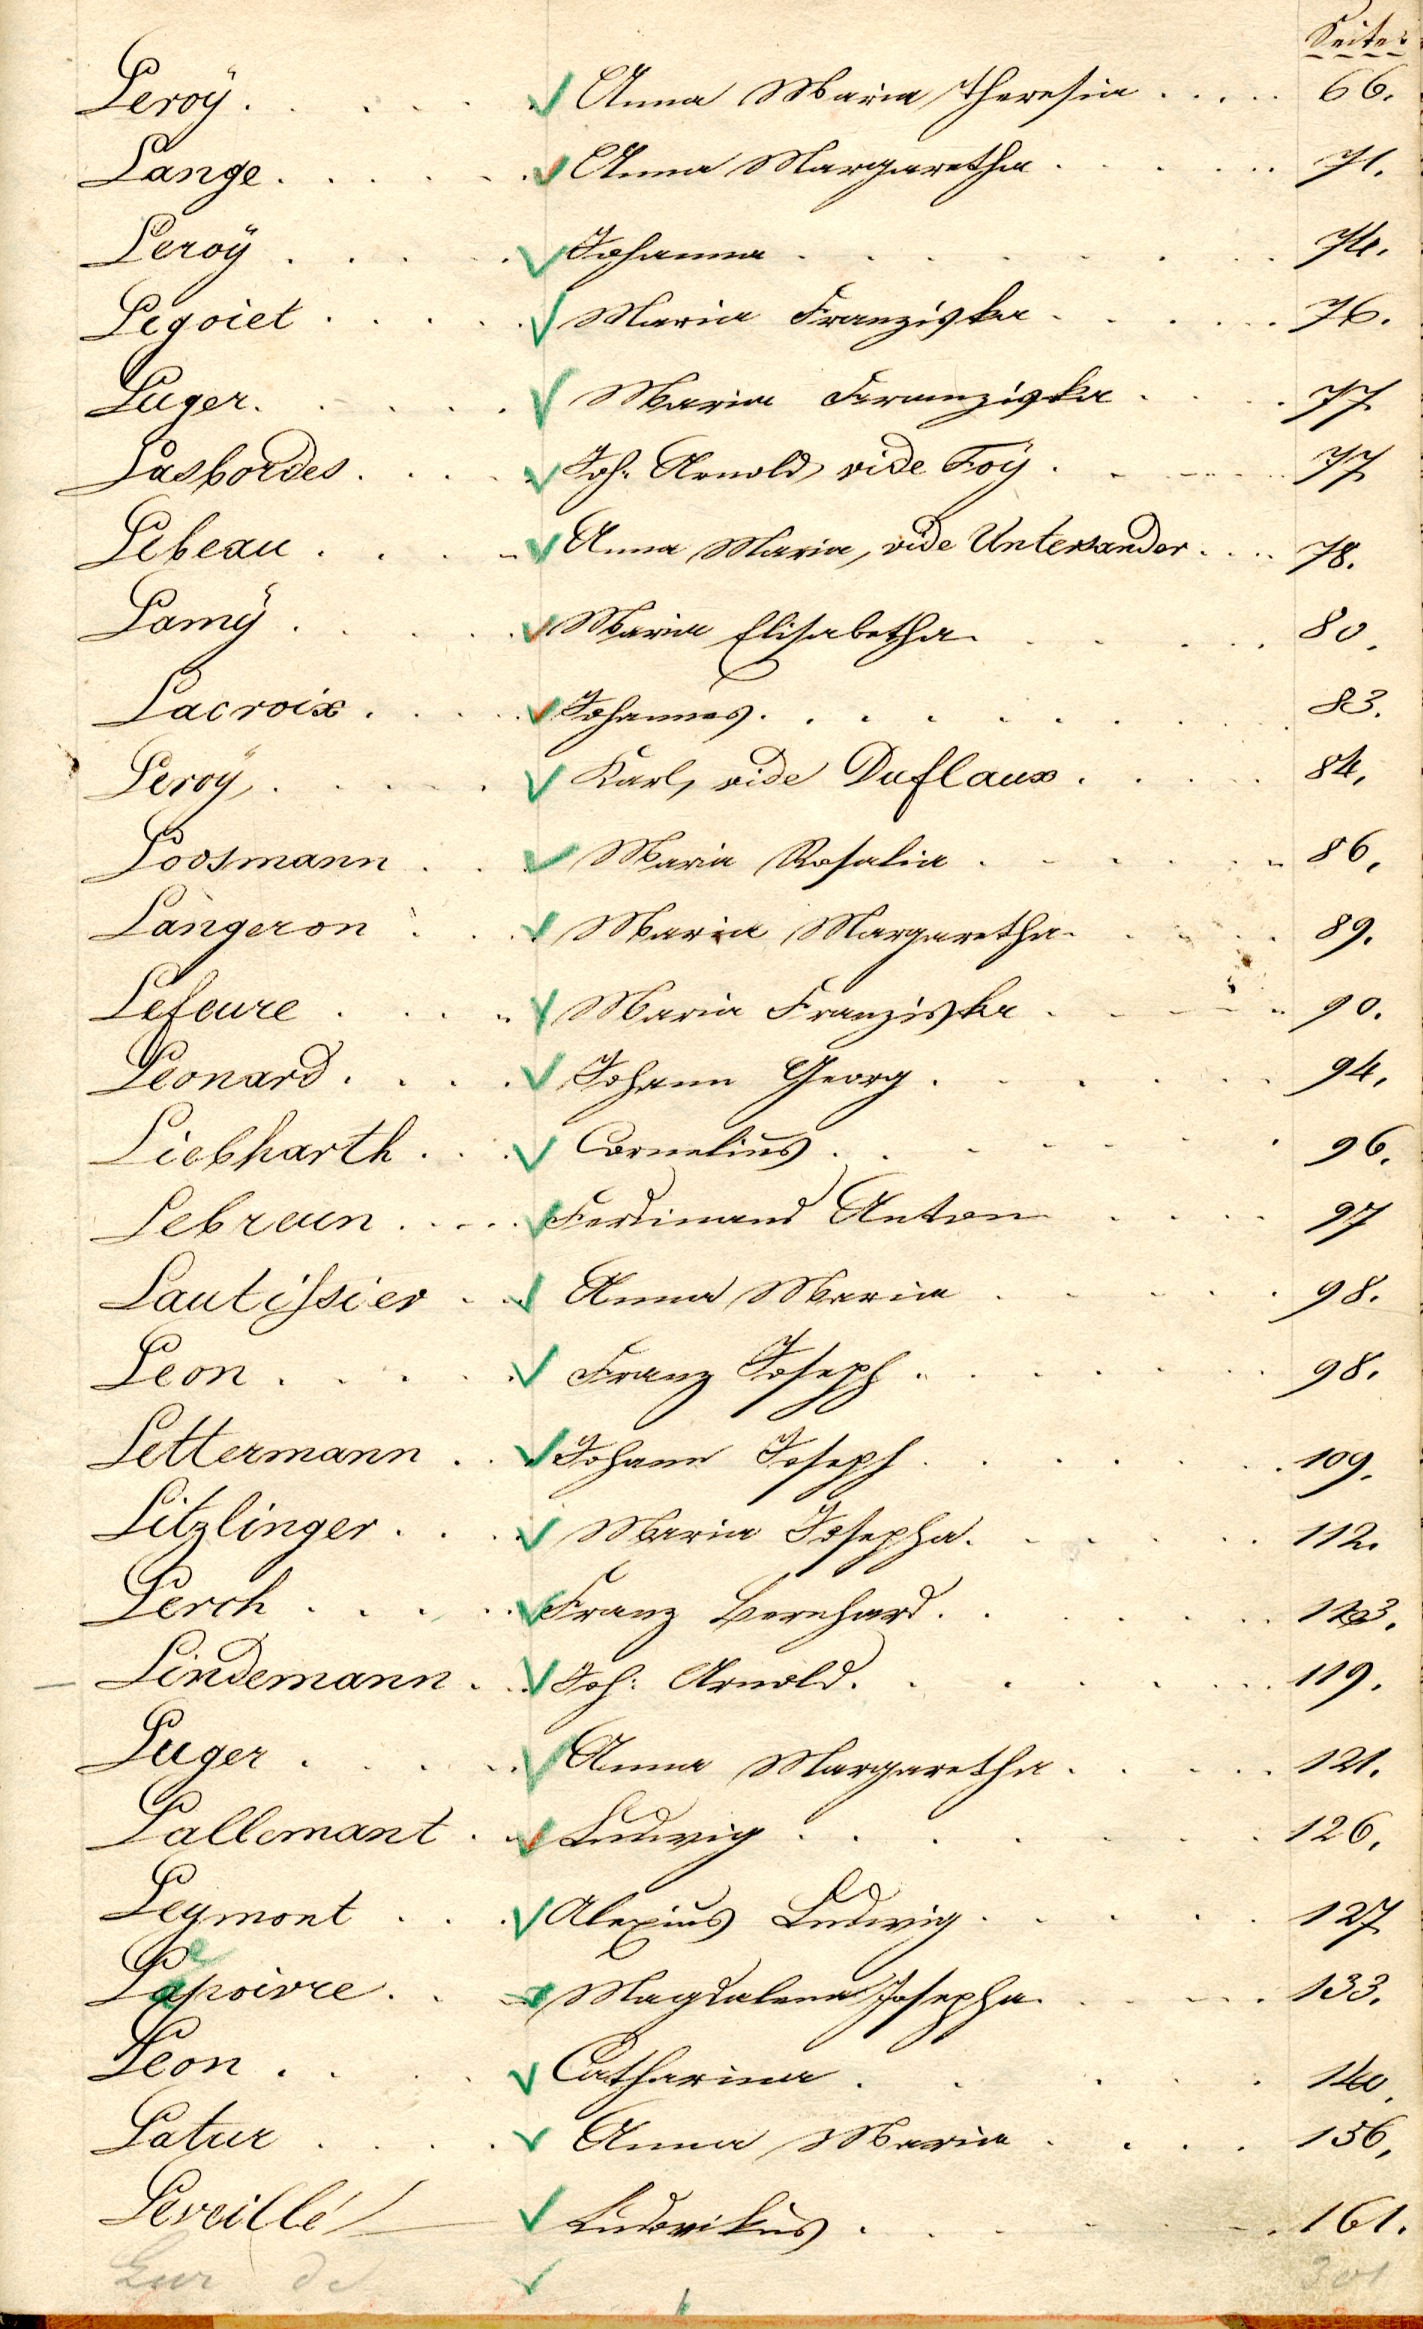 Seite:
Leroÿ. . . . . . Anna Maria Theresia . . . . . 66.
Lange. . . . . . Anna Margaretha . . . . . . 71.
Leroÿ . . . . . Johanna . . . . . . . 74.
Legoiet . . . . . Maria Franziska . . . . . . 76.
Luger. . . . . . Maria Franziska . . . . 77
Lasbordes. . . . Joh: Arnold vide Foÿ . . . . . 77
Lebeau . . . . Anna Maria, vide Untersander. . . . 78.
Lamÿ . . . . . Maria Elisabetha . . . . . . 80.
Lacroix. . . . . Johannes. . . . . . . . . 83.
Leroÿ. . . . . . Karl, vide Duflaux . . . . . 84.
Loosmann . . . Maria Rosalia . . . . . . 86.
Langeron . . . Maria Margaretha. . . . . 89.
Lefeure . . . . Maria Franziska . . . . . 90.
Leonard. . . . . Johann Georg . . . . . . 94.
Liebharth . . . Cornelius . . . . . . . 96.
Lebrun . . . . Ferdinand Anton . . . . 97
Lautissier . . . Anna Maria . . . . . . 98.
Leon . . . . . Franz Joseph . . . . . . . 98.
Lettermann . . Johann Joseph . . . . . . . 109.
Litzlinger. . . . Maria Josepha. . . . . . 112.
Lerch . . . . . Franz Bernhard. . . . . . . 113.
Lindemann . . . Joh: Arnold. . . . . . . . 119.
Luger . . . . . Anna Margaretha . . . . . 121.
Lallemant . . . Ludwig . . . . . . . . 126.
Legmont . . . Alexius Ludwig . . . . . 127
e
Lapoivre . . . Magdalena Josepha. . . . . 133.
Leon . . . . Catharina . . . . . . 140.
Latur . . . . Anna Maria . . . . 156.
Leveillé Ludovikus . . . . . . . 161.
301